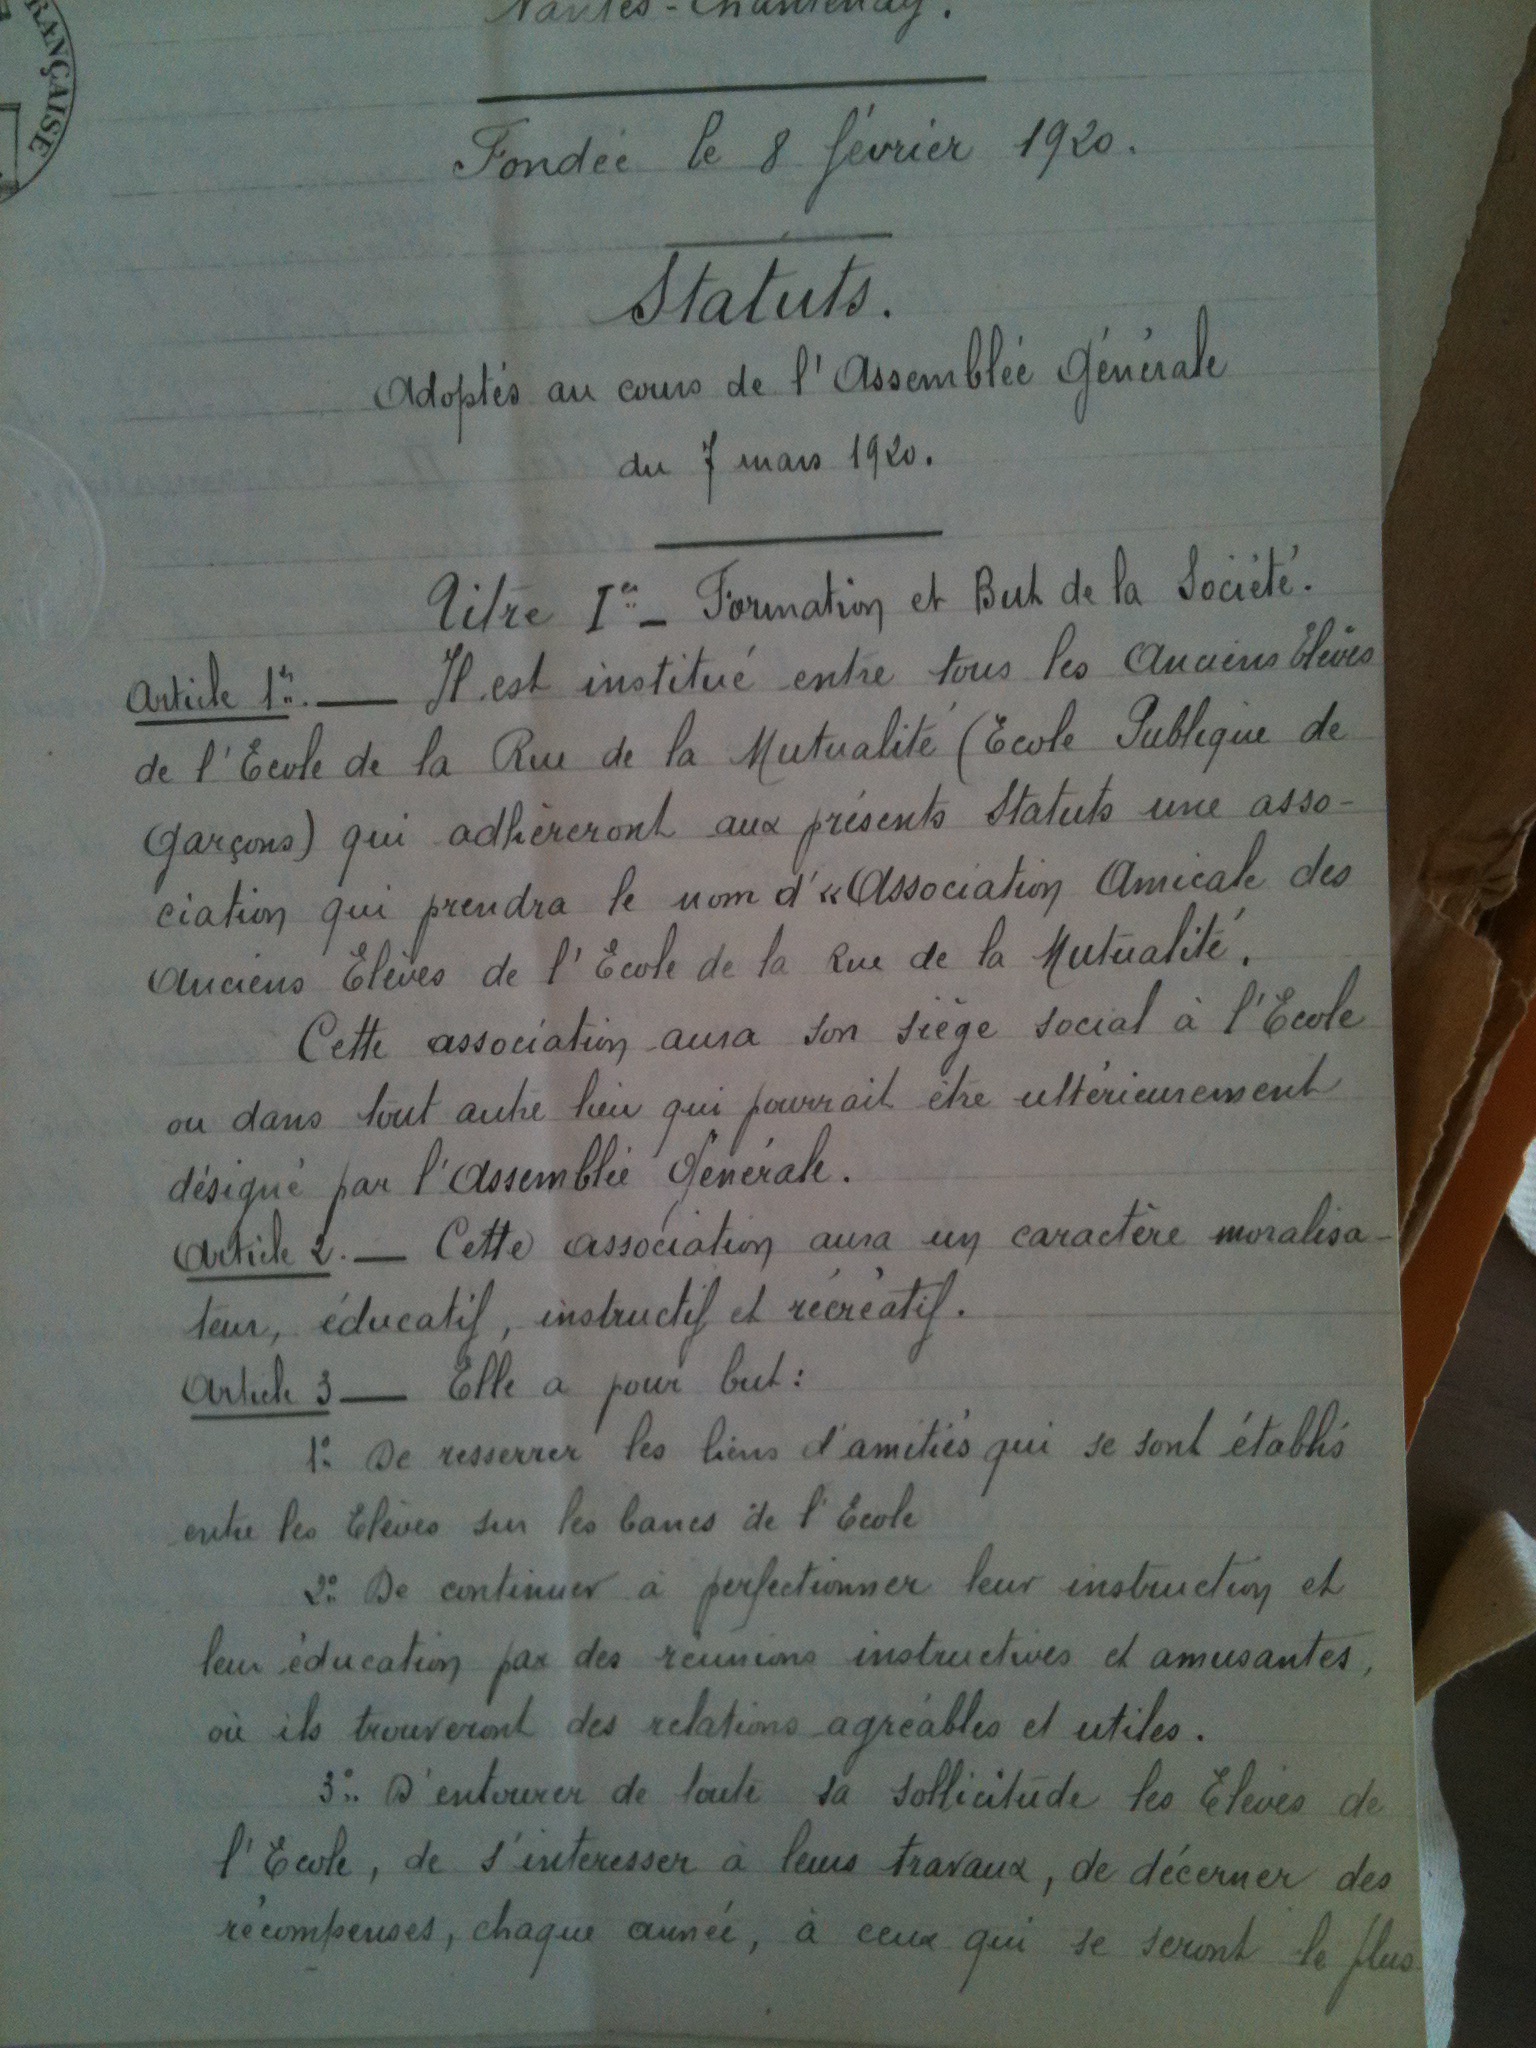 RANÇAISE
Nantes-Chantenay.
Fondée le 8 février 1920.
Statuts.
Adoptés au cours de l'Assemblée Générale
du 7 mars 1920.
Titre Ier - Formation et But de la Société.
Article 1er. — Il est institué entre tous les Anciens Elèves
de l'Ecole de la Rue de la Mutualité (Ecole Publique de
Garçons) qui adhèreront aux présents Statuts une asso-
ciation qui prendra le nom d'«Association Amicale des
Anciens Elèves de l'Ecole de la Rue de la Mutualité.
Cette association aura son siège social à l'Ecole
ou dans tout autre lieu qui pourrait être ultérieurement
désigné par l'Assemblée Générale.
Article 2. — Cette association aura un caractère moralisa-
teur, éducatif, instructif et récréatif.
Article 3 — Elle a pour but:
1º De resserrer les liens d'amitiés qui se sont établis
entre les Elèves sur les bancs de l'Ecole
2º De continuer à perfectionner leur instruction et
leur éducation par des réunions instructives et amusantes,
où ils trouveront des relations agréables et utiles.
3º D'entourer de toute sa sollicitude les Elèves de
l'Ecole, de s'intéresser à leurs travaux, de décerner des
récompenses, chaque année, à ceux qui se seront le plus